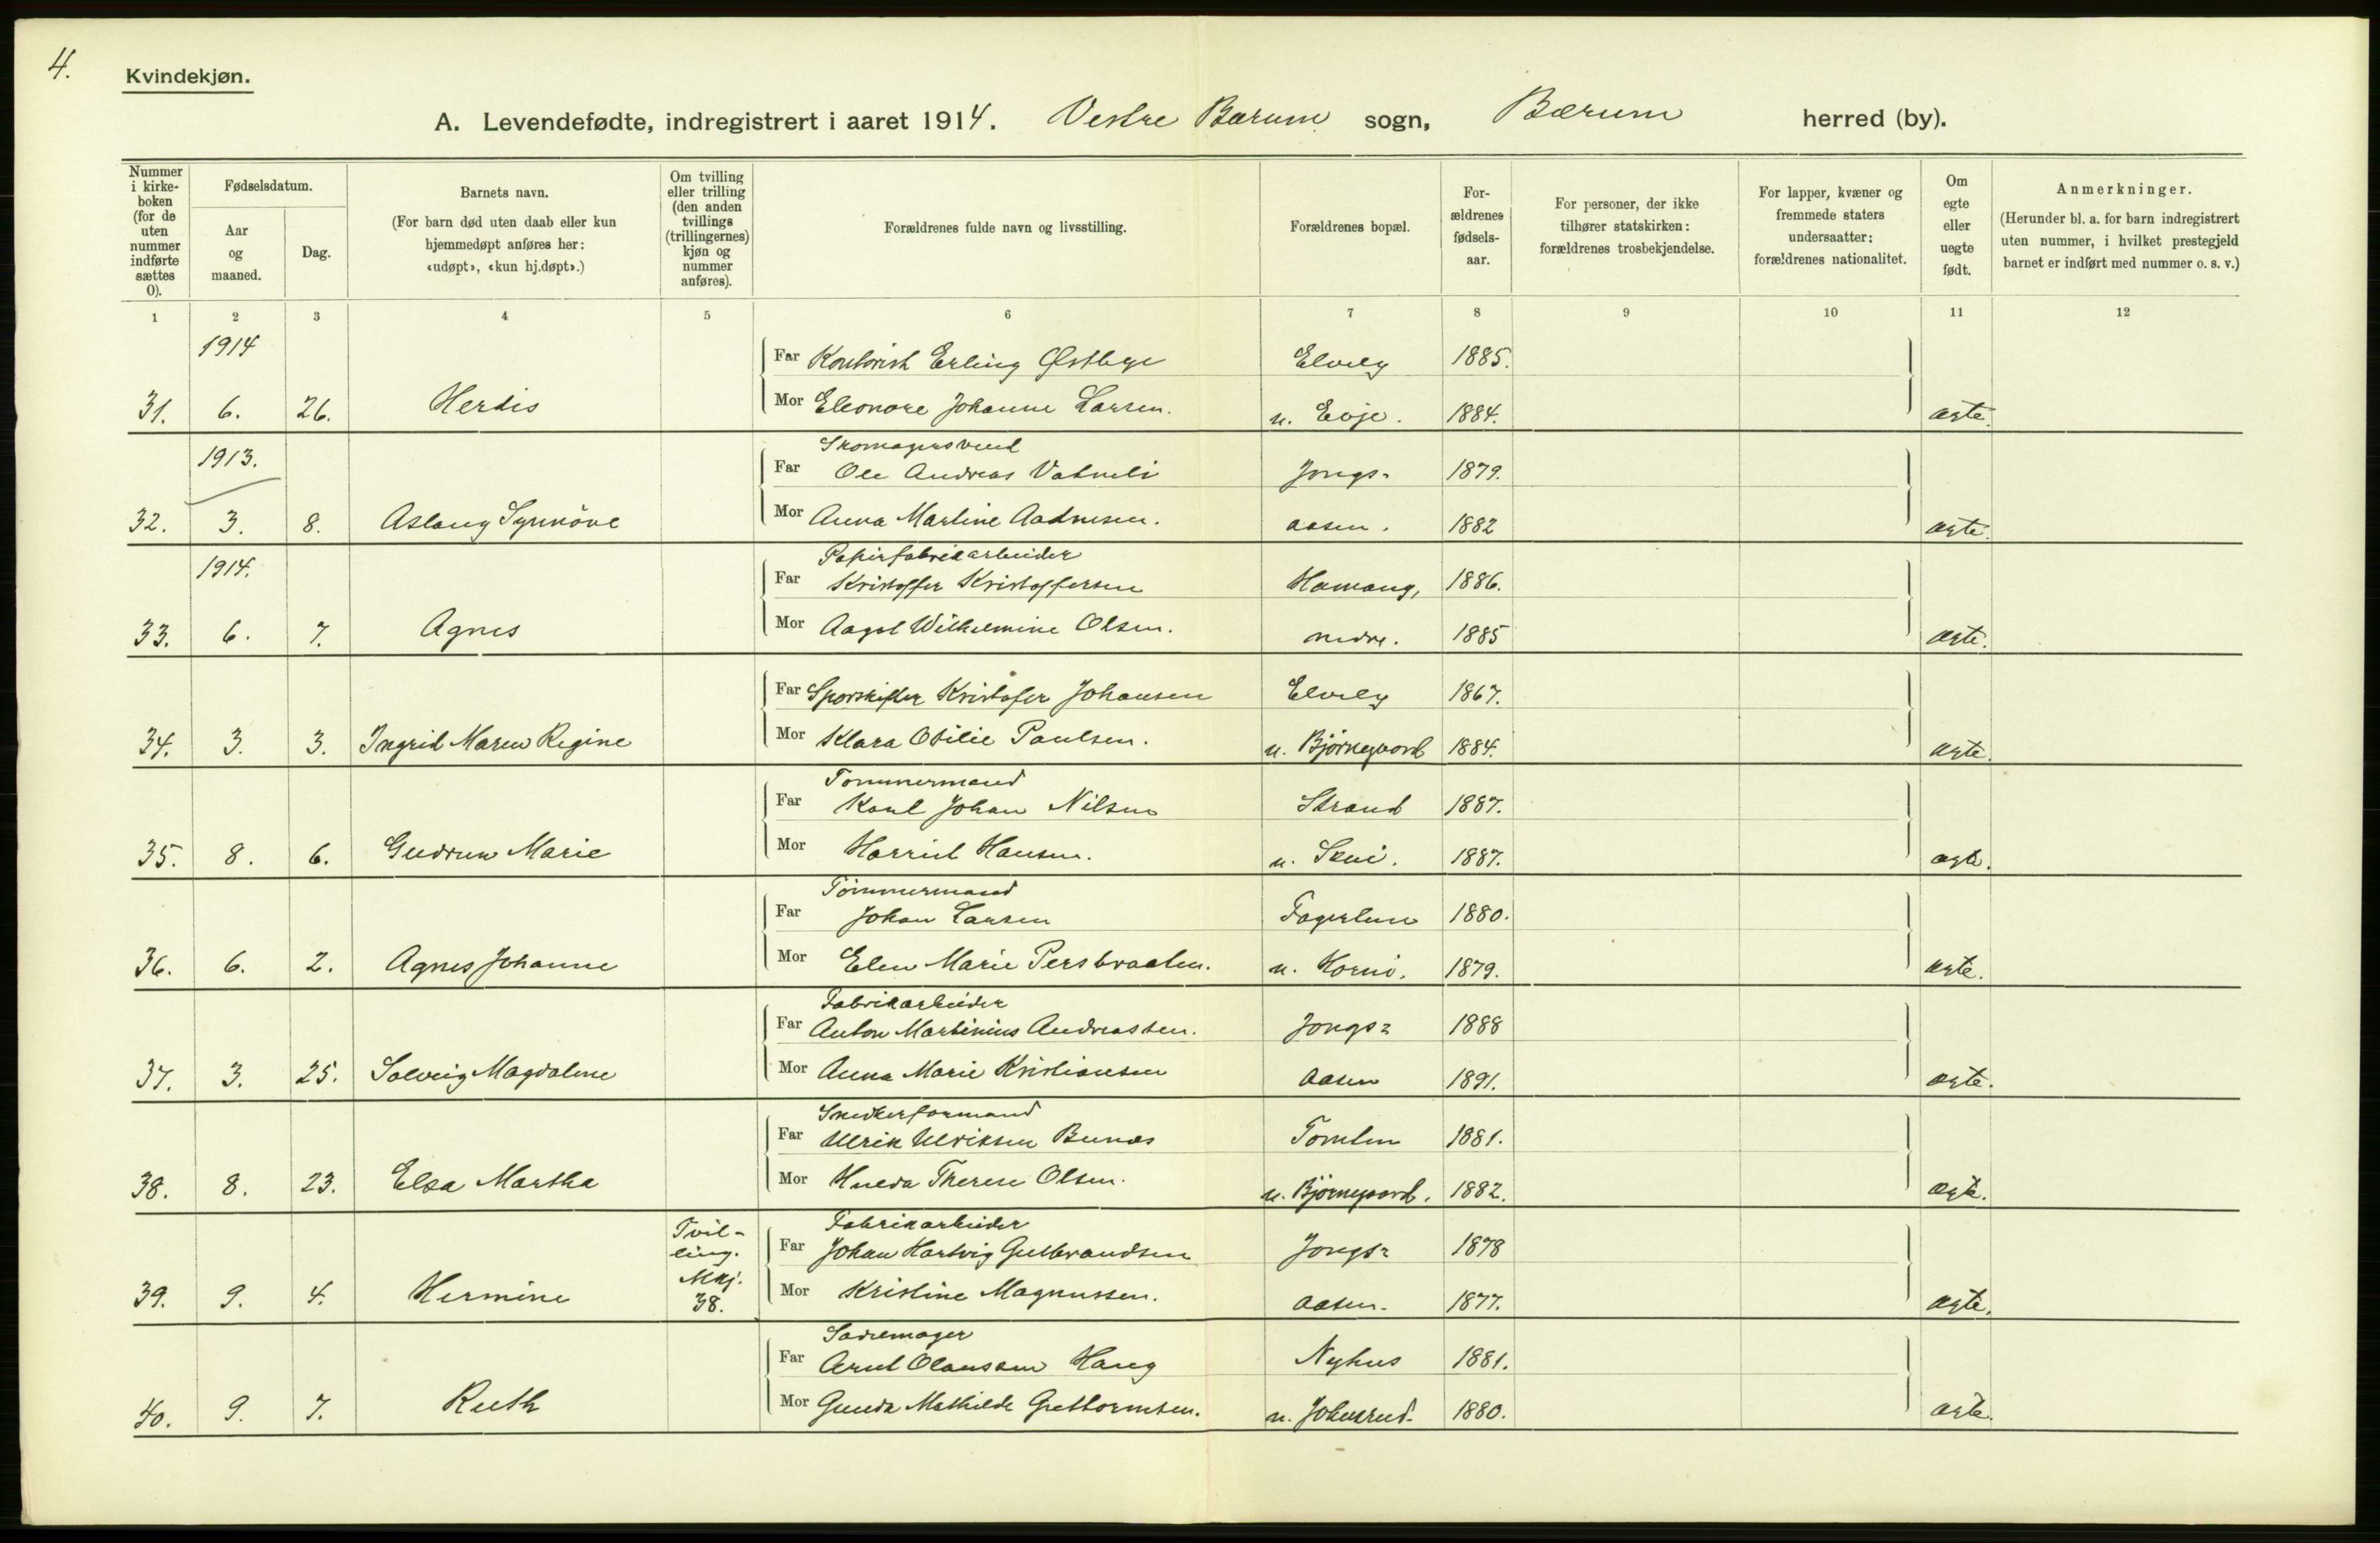 4.
Kvindekjøn.
A. Levendefødte, indregistrert i aaret 1914. Vestre Bærum sogn, Bærum herred (by).
Nummer i kirke- boken (for de uten nummer indførte sættes 0).
Fødselsdatum.
Aar og maaned.
Dag.
Barnets navn.
(For barn død uten daab eller kun hjemmedøpt anføres her: «udøpt», «kun hj.døpt».)
Om tvilling eller trilling (den anden tvillings (trillingernes) kjøn og nummer anføres).
Forældrenes fulde navn og livsstilling.
Forældrenes bopæl.
For- ældrenes fødsels- aar.
For personer, der ikke tilhører statskirken: forældrenes trosbekjendelse.
For lapper, kvæner og fremmede staters undersaatter: forældrenes nationalitet.
Om egte eller uegte født.
Anmerkninger.
(Herunder bl. a. for barn indregistrert uten nummer, i hvilket prestegjeld barnet er indført med nummer o. s. v.)
1 2 3 4 5 6 7 8 9 10 11 12
1914
Far Kontorist Erling Østbye Elvely 1885.
31. 6. 26. Herdis Mor Eleonore Johanne Larsen. u. Evje. 1884. ægte.
1913. Skomagersvend
Far Ole Andreas Vatneli Jongs- 1879.
32. 3. 8. Aslaug Synnöve Mor Anna Martine Aadnesen. aasen. 1882 ægte.
1914. Papirfabrikarbeider
Far Kristoffer Kristoffersen Hamang, 1886.
33. 6. 7. Agnes Mor Aagot Wilhelmine Olsen. nedre. 1885 ægte.
Far Sporskifter Kristofer Johansen Elvely 1867.
34. 3. 3. Ingrid Maren Regine Mor Klara Otilie Paulsen. u. Bjørnegaard 1884. ægte.
Tømmermand
Far Karl Johan Nilsen Strand 1887.
35. 8. 6. Gudrun Marie Mor Harriet Hansen. u. Skui. 1887. ægte.
Tømmermand
Far Johan Larsen Fagerlun 1880.
36. 6. 2. Agnes Johanne Mor Elen Marie Persbraaten. u. 1879. ægte.
Fabrikarbeider
Far Anton Martinius Andreassen. Jongs- 1888
37. 3. 25. Solveig Magdalene Mor Anna Marie Kristiansen aasen 1891. ægte.
Snedkerformand
Far Ulrik Ulriksen Bunæs Tomten 1881.
38. 8. 23. Elsa Martha Mor Hulda Therese Olsen. u. Bjørnegaard. 1882. ægte.
Tvil- Fabrikarbeider
ling. Far Johan Hartvig Gulbrandsen Jongs- 1878
39. 9. 4. Hermine Mkj. 38. Mor Kristine Magnussen. aasen. 1877. ægte.
Sadelmager
Far Arnt Olaussen Haug Nyhus 1881.
40. 9. 7. Ruth Mor Gunda Mathilde Guttormsen. u. Johnsrud. 1880. ægte.